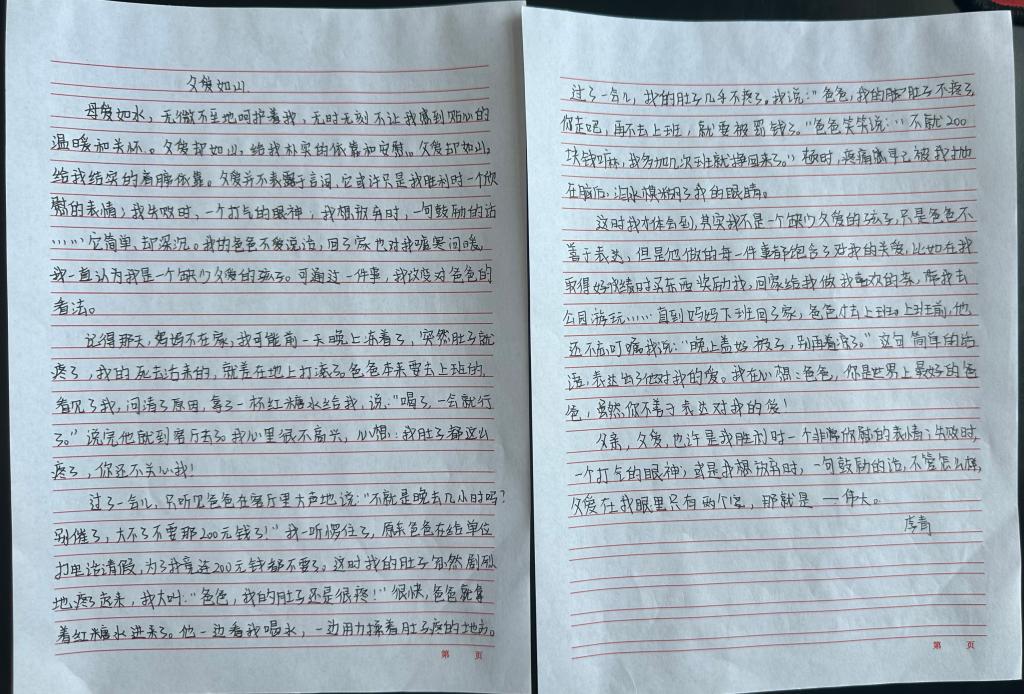 父爱如山
母爱如水，无微不至地呵护着我，无时无刻不让我感到贴心的
温暖和关怀。父爱却如山，给我朴实的依靠和安慰。父爱却如山，
给我结实的肩膀依靠。父爱并不表露于言词，它或许只是我胜利时一个欣
慰的表情；我失败时，一个打气的眼神，我想放弃时，一句鼓励的话
……它简单，却深沉。我的爸爸不爱说话，回了家也对我嘘寒问暖，
我一直认为我是一个缺少父爱的孩子。可通过一件事，我改变对爸爸的
看法。
记得那天，妈妈不在家，我可能前一天晚上冻着了，突然肚子就
疼了，我的死去活来的，就差在地上打滚了。爸爸本来要去上班的，
看见了我，问清了原因，拿了一杯红糖水给我，说：“喝了，一会就行
了。”说完他就到客厅去了。我心里很不高兴，心想：我肚子都这么
疼了，你还不关心我！
过了一会儿，只听见爸爸在客厅里大声地说：“不就是晚去几小时吗？
别催了，大不了不要那200元钱了！”我一听愣住了，原来爸爸在给单位
打电话请假，为了我竟连200元钱都不要了。这时我的肚子忽然剧烈
地疼了起来，我大叫：“爸爸，我的肚子还是很疼！”很快，爸爸就拿
着红糖水进来了。他一边看我喝水，一边用力揉着肚子疼的地方。
第 页
过了一会儿，我的肚子几乎不疼了。我说：“爸爸，我的肚子不疼了，
你走吧，再不去上班，就要被罚钱了。”爸爸笑笑说：“不就200
块钱嘛，我多加几次班就挣回来了。”顿时，疼痛感早已被我抛
在脑后，泪水模糊了我的眼睛。
这时我才体会到，其实我不是一个缺少父爱的孩子，只是爸爸不
善于表达，但是他做的每一件事都饱含了对我的关爱，比如在我
取得好成绩时买东西奖励我，回家给我做我喜欢的菜，带我去
公园游玩……直到妈妈下班回了家，爸爸才去上班。上班前，他
还不忘叮嘱我说：“晚上盖好被子，别再着凉了。”这句简单的话
语，表达出了他对我的爱。我在心想：爸爸，你是世界上最好的爸
爸，虽然你不善于表达对我的爱！
父亲，父爱，也许是我胜利时一个非常欣慰的表情；失败时，
一个打气的眼神；或是我想放弃时，一句鼓励的话，不管怎么样，
父爱在我眼里只有两个字，那就是——伟大。
第 页